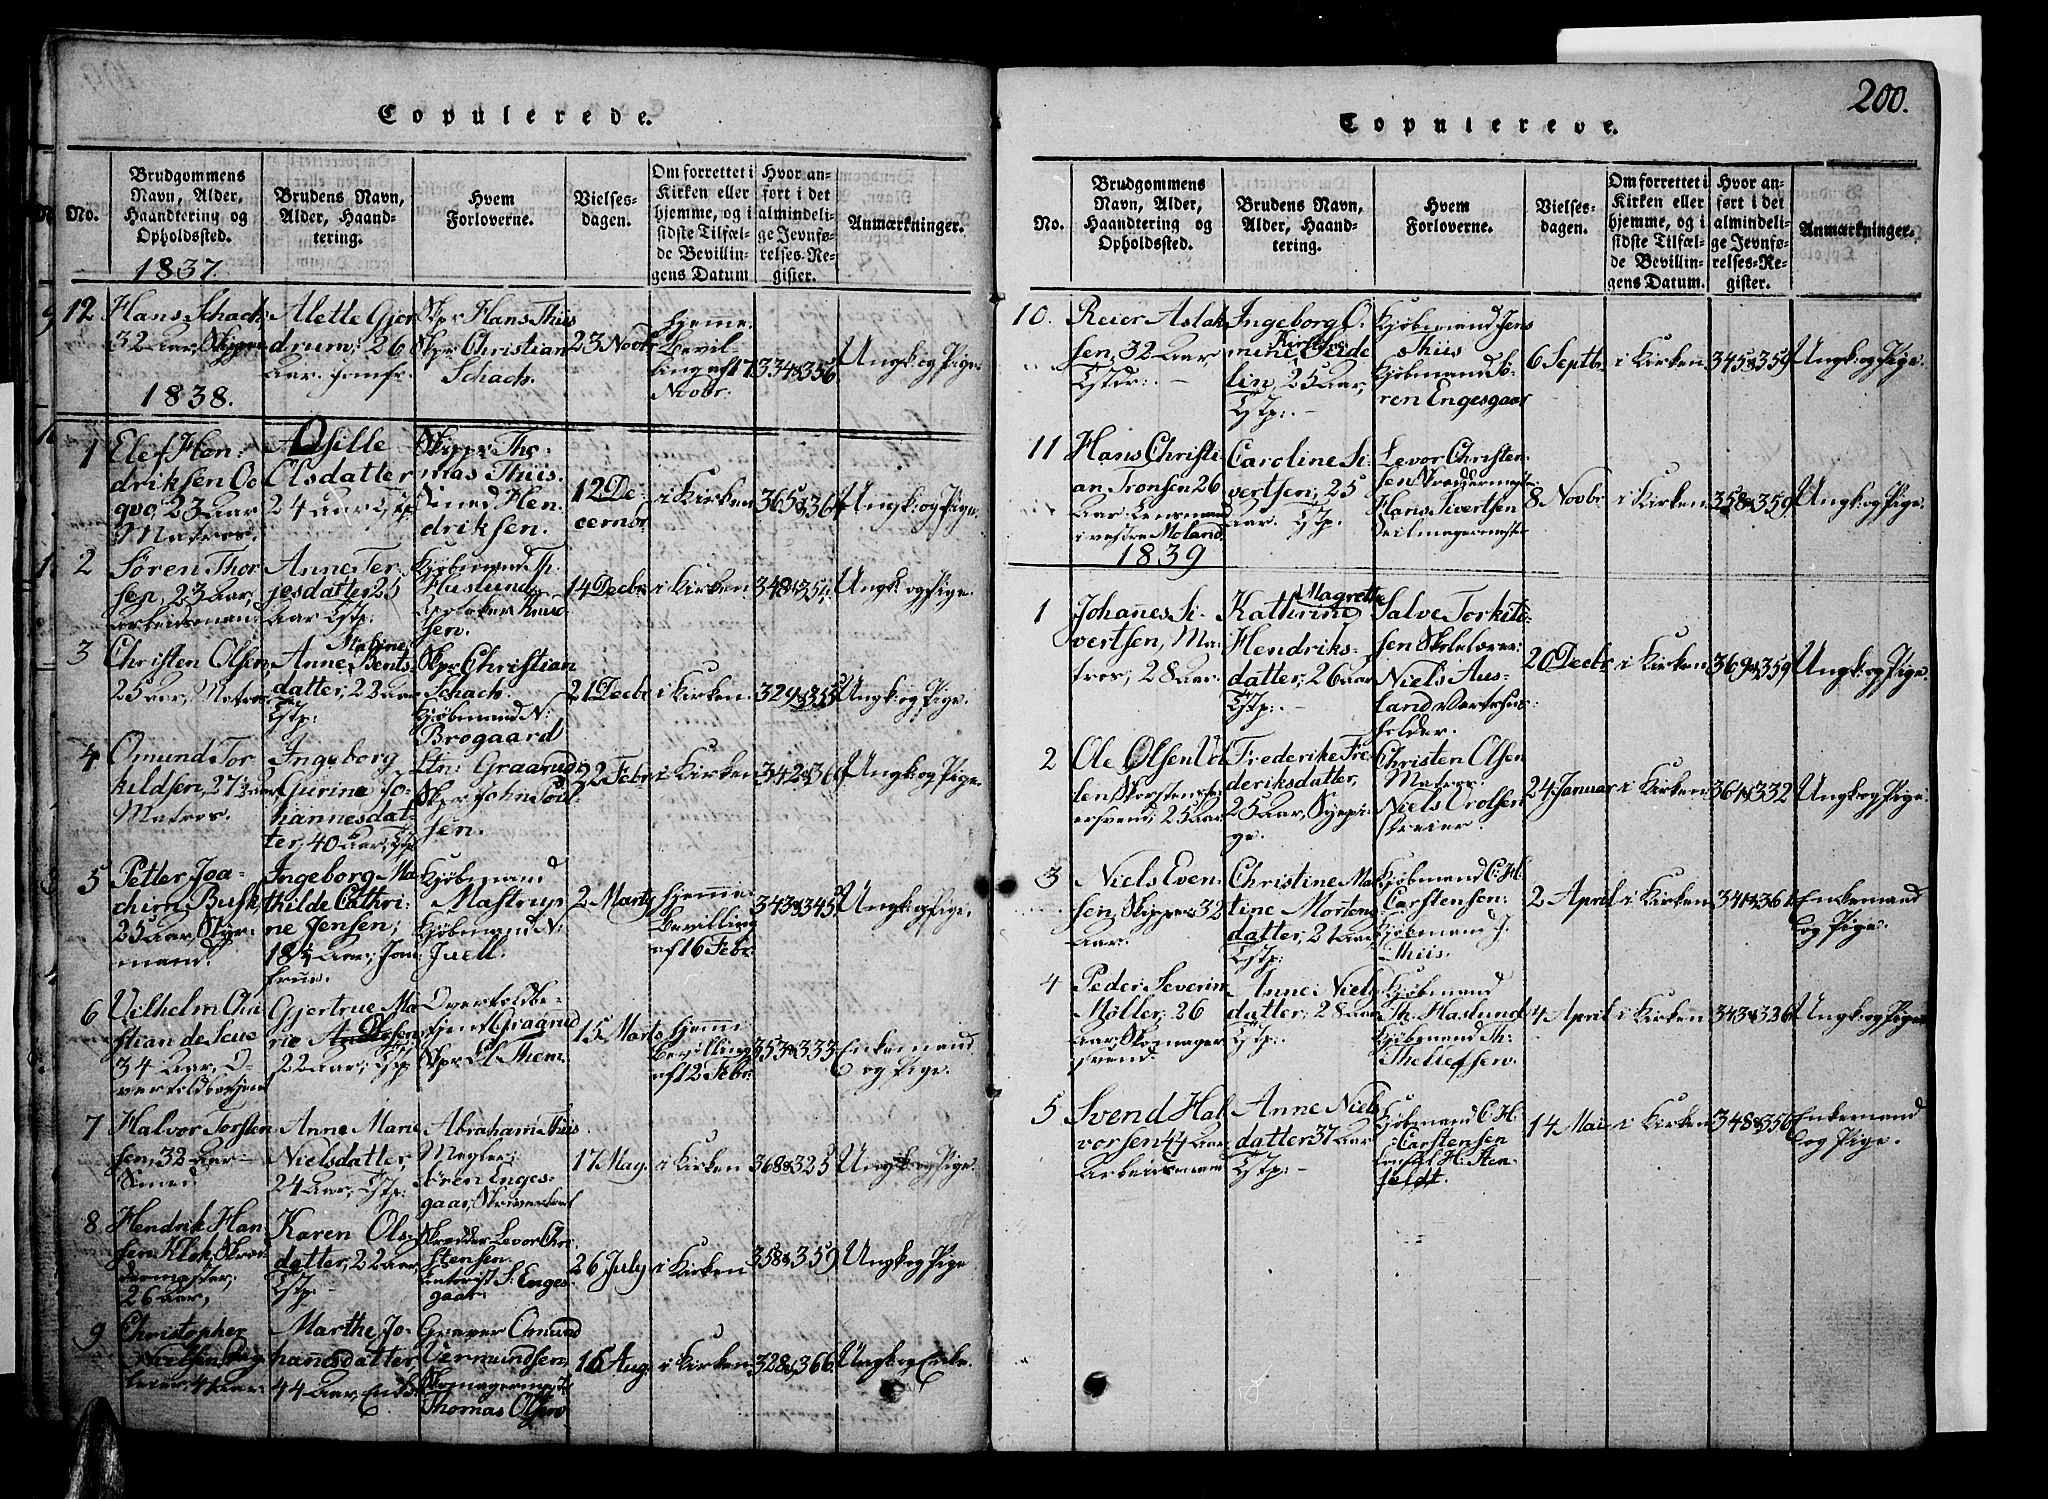 Copulerede.
No.
Brudgommens
Navn, Alder,
Haandtering og
Opholdssted.
Brudens Navn,
Alder, Haand-
tering.
Hvem
Forloverne.
Vielses-
dagen.
Om forrettet i
Kirken eller
hjemme, og i
sidste Tilfæl-
de Bevillin-
gens Datum
Hvor an-
ført i det
almindeli-
ge Jevnfø-
relses-Re-
gister.
Anmærkninger.
1837.
12
Hans Schach
32 Aar, Skipper
Alette Gjer
drum, 26
Aar. Jomfr.
Skpr Hans Thiis
Skpr Christian
Schach.
23 Novbr
hjemme.
Bevil-
ling af 17
Novbr.
334 & 356
Ungk: og Pige.
1838.
1
Elef Hen-
driksen
23 Aar
Matros.
Osille
Elsdatter
24 Aar
Skippr Tho-
mas Thiis.
Hen-
driksen.
12 De-
cembr
i Kirken
365 & 364
Ungk: og Pige.
2
Søren Thor
sen, 23 Aar,
Arbeidsmand
Anne Ter-
jesdatter 25
Aar Tstp:
Kjøbmand Th.
Haslund
Knud-
sen.
14 Decbr
i Kirken
348 & 354
Ungk. og Pige.
3
Christen Olsen,
25 Aar, Matros
Malene
Anne Bents-
datter, 22 Aar
Tstp:
Skpr Christian
Schach.
Kjøbmand N:
Brogaard
21 Decbr
i Kirken
329 & 355
Ungk: og Pige.
4
Omund Tor
kildsen, 27½ Aar,
Matros.
Ingeborg
Gurine Jo-
hannesdat-
ter, 40 Aar,
Ltn: Graarud
Skpr John Poul-
sen.
22 Febr
i Kirken
342 &
Ungk og Pige.
5
Petter Joa-
chim Busk,
25 Aar, Styr-
mand.
Ingeborg Ma-
thilde Cathri-
ne Jensen,
18½ Aar, Jom-
frue.
Kjøbmand
Mastrup
Kjøbmand N:
Juell.
2 Marts
hjemme.
Bevilling
af 16 Febr.
343 & 345
Ungk. og Pige.
6
Vilhelm Chri
stian de Seue
34 Aar, O-
vertoldbetjent
Gjertrue Ma-
rie
22 Aar,
Overtoldbe-
tjent Graarud
Skpr El. Them.
15 Marts
hjemme
Bevilling
af 12 Febr.
353 & 333
Enkemand
og Pige.
7
Halvor Torsten
sen, 32 Aar
Smed
Anne Marie
Nielsdatter,
24 Aar, Tstp:
Abraham Thiis
Mægler.
Søren Enges-
gaar,
17 May.
i Kirken
368 & 325
Ungk og Pige.
8
Hendrik Han
sen Klok, Skræd
dermester,
26 Aar,
Karen Ols-
datter, 22 Aar
Tstp:
Skrædder Levor Chri-
stensen.
S. Enges-
gaar.
26 July
i Kirken
358 & 359
Ungk og Pige
9
Christopher
Nielsen
Marthe Jo-
hannesdatter,
44 Aar, Enke
Graver Omund
Vermundsen,
Skomagermester
Thomas Olsen
16 Aug.
i Kirken
328 & 366
Ungk og Enke.
200.
Copulerede.
No.
Brudgommens
Navn, Alder,
Haandtering og
Opholdssted.
Brudens Navn,
Alder, Haand-
tering.
Hvem
Forloverne.
Vielses-
dagen.
Om forrettet i
Kirken eller
hjemme, og i
sidste Tilfæl-
de Bevillin-
gens Datum.
Hvor an-
ført i det
almindeli-
ge Jevnfø-
relses-Re-
gister.
Anmærkninger.
10.
Reier Aslak
sen, 32 Aar,
Tstdr:
Ingeborg O.
mine Seide
lin, 25 Aar,
Tstp:
Kjøbmand Jens
Thiis
Kjøbmand Sø-
ren Engesgaar
6 Septbr
i Kirken
345 & 359
Ungk: og Pige.
11
Hans Christi
an Tronsen 26
Aar Lensmand
i vestre Moland.
Caroline Si
vertsen, 25
Aar. Tstp.
Levor Christen-
sen Skræddermester
Hans Sivertsen
Seilmagermester
8 Novbr
i Kirken
358 & 359
Ungk: og Pige.
1839
1
Johanes Si-
vertsen, Ma-
tros, 28 Aar.
Magrethe
Kathrine
Hendriks-
datter, 26 Aar
Tstp:
Salve Torkild-
sen Skolelærer.
Niels Aus-
land Vertshus-
holder.
20 Decbr
i Kirken
368 & 359
Ungk: og Pige.
2
Ole Olsen
Skorstensfei
ersvend, 25 Aar
Frederike Fre-
deriksdatter,
25 Aar, Sypi-
ge.
Christen Olsen
Matros.
Niels Erolsen
24 Januar
i Kirken
361 & 332
Ungk og Pige.
3
Niels Even-
sen, Skipper 32
Aar.
Christine Ma
tine Mortens
datter, 21 Aar
Tstp:
Kjøbmand C: H.
Carstensen.
Kjøbmand J.
Thiis.
2 April
i Kirken
341 & 361
Enkemand
og Pige.
4
Peder Severin
Møller, 26
Aar, Skomager
svend.
Anne Niels
datter, 28 Aar
Tstp:
Kjøbmand
Th. Haslund
Kjøbmand Th:
Thellefsen.
4 April
i Kirken
343 & 336
Ungk og Pige
5
Svend Hal
vorsen 44 Aar
Arbeidsmand
Anne Niels
datter 37 Aar
Tstp:
Kjøbmand C. H.
Carstensen
Consul H: Sten-
feldt.
14 Mai
i Kirken
348 & 356
Enkemand
og Pige.